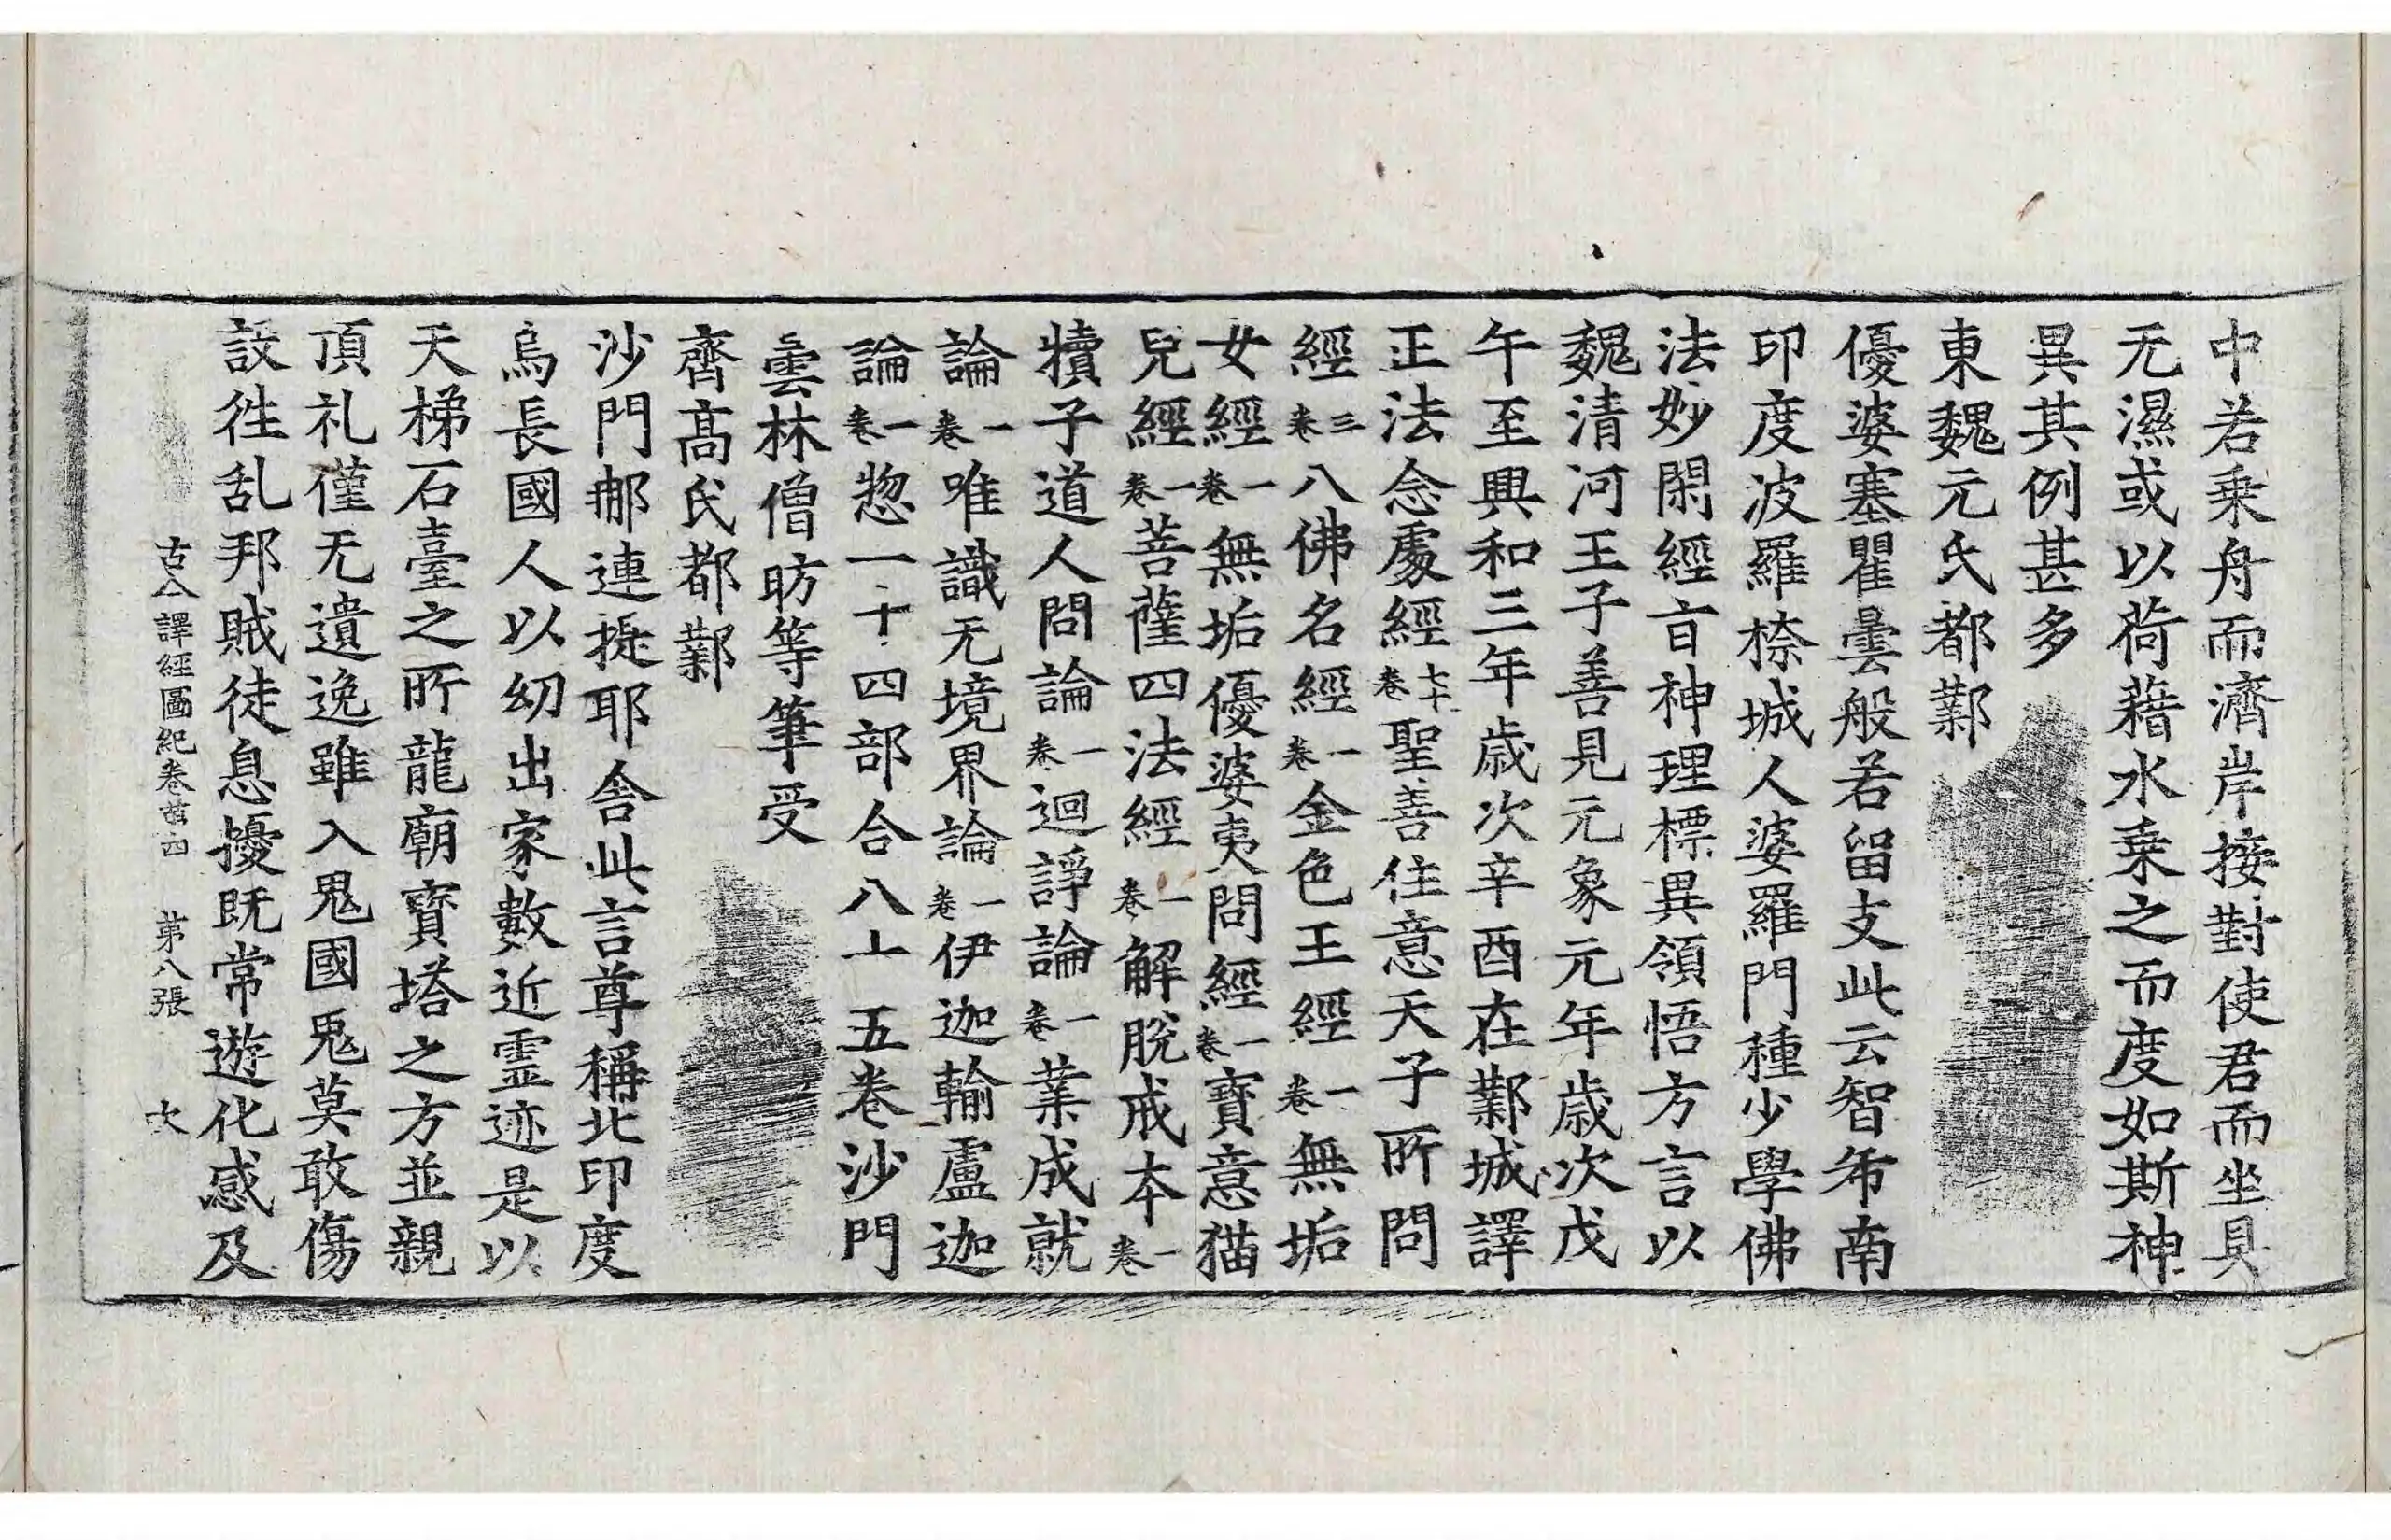 中若乗舟而濟岸接對使君而坐具
无濕或以荷藉水乗之而度如斯神
異其例甚多
東魏元氏都鄴
優婆塞瞿曇般若留支此云智希南
印度波羅㮈城人婆羅門種少學佛
法妙閑經旨神理標異領悟方言以
魏清河王子善見元象元年歳次戊
午至興和三年歳次辛酉在鄴城譯
正法念處經七十卷聖善住意天子所問
經三卷八佛名經一卷金色王經一卷無垢
女經一卷無垢優婆夷問經一卷寶意猫
兒經一卷菩薩四法經一卷解脫戒本一卷
犢子道人問論一卷迴諍論一卷業成就
論一卷唯識无境界論一卷伊迦輸盧迦
論一卷惣一十四部合八十五卷沙門
曇林僧昉等筆受
齊高氏都鄴
沙門那連提耶舍此言尊稱北印度
烏長國人以幼出家數近霊迹是以
天梯石臺之所龍廟寶塔之方並親
頂礼僅无遺逸雖入鬼國鬼莫敢傷
設徃乱邦賊徒息擾既常遊化感及
古今譯經圖紀卷苐四 苐八張 次